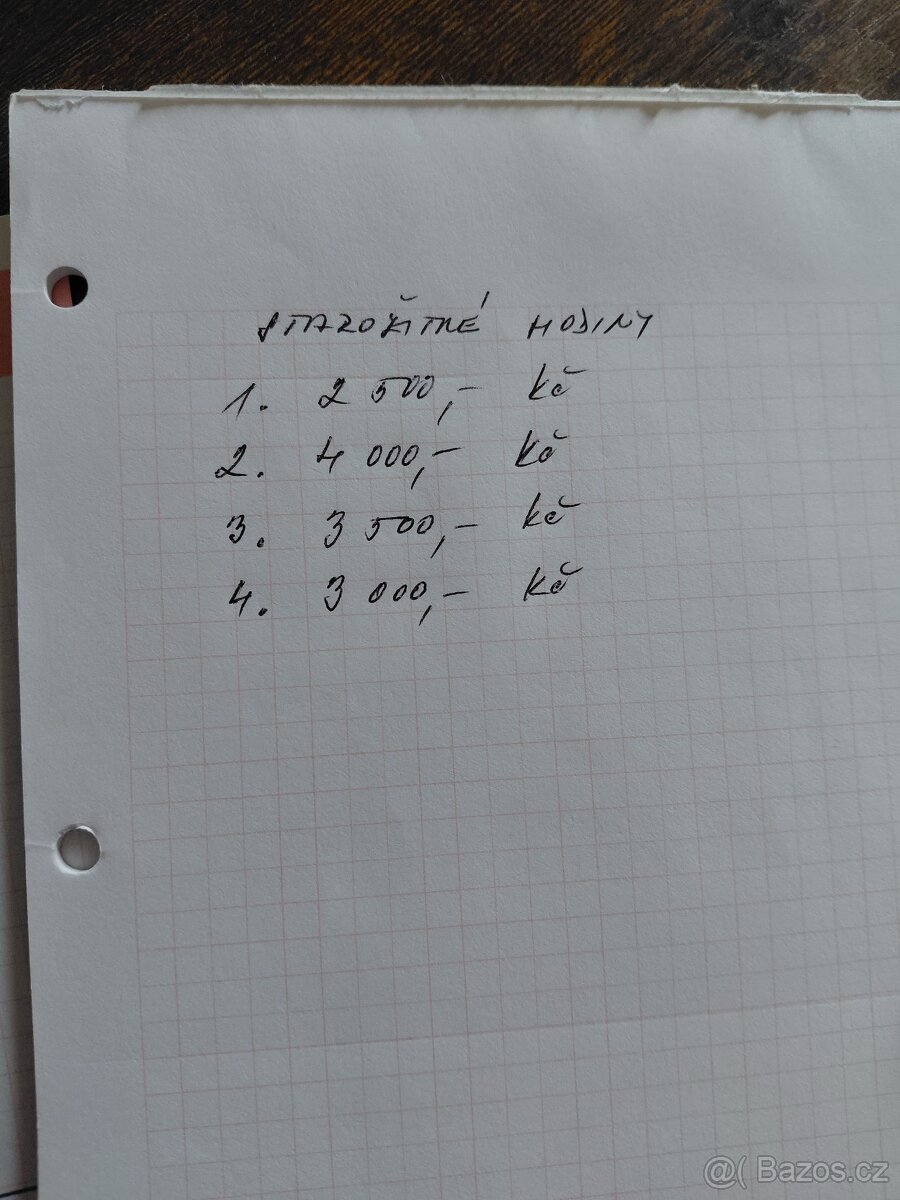 STAROŽITNÉ HODINY
1. 2 500,- Kč
2. 4 000,- Kč
3. 3 500,- Kč
4. 3 000,- Kč
@( Bazos.cz